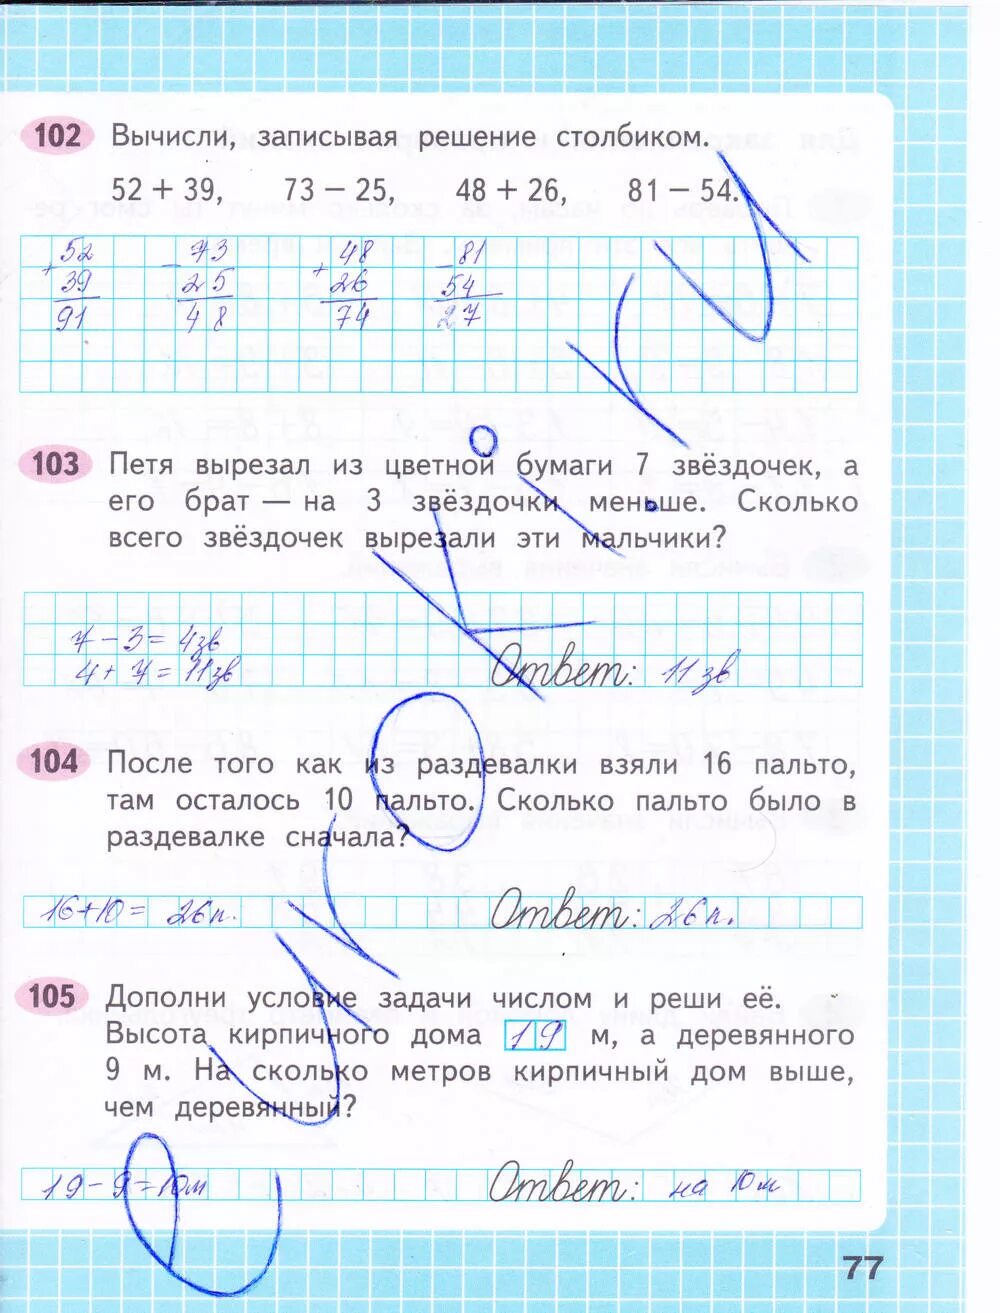 102 Вычисли, записывая решение столбиком.
52 + 39, 73 − 25, 48 + 26, 81 − 54.
+ 52 − 73 + 48 − 81
39 25 26 54
91 48 74 27
103 Петя вырезал из цветной бумаги 7 звёздочек, а
его брат — на 3 звёздочки меньше. Сколько
всего звёздочек вырезали эти мальчики?
7 − 3 = 4зв
4 + 7 = 11зв Ответ: 11 зв
104 После того как из раздевалки взяли 16 пальто,
там осталось 10 пальто. Сколько пальто было в
раздевалке сначала?
16+10= 26п. Ответ: 26п.
105 Дополни условие задачи числом и реши её.
Высота кирпичного дома 19 м, а деревянного
9 м. На сколько метров кирпичный дом выше,
чем деревянный?
19 − 9 = 10м Ответ: на 10м
77